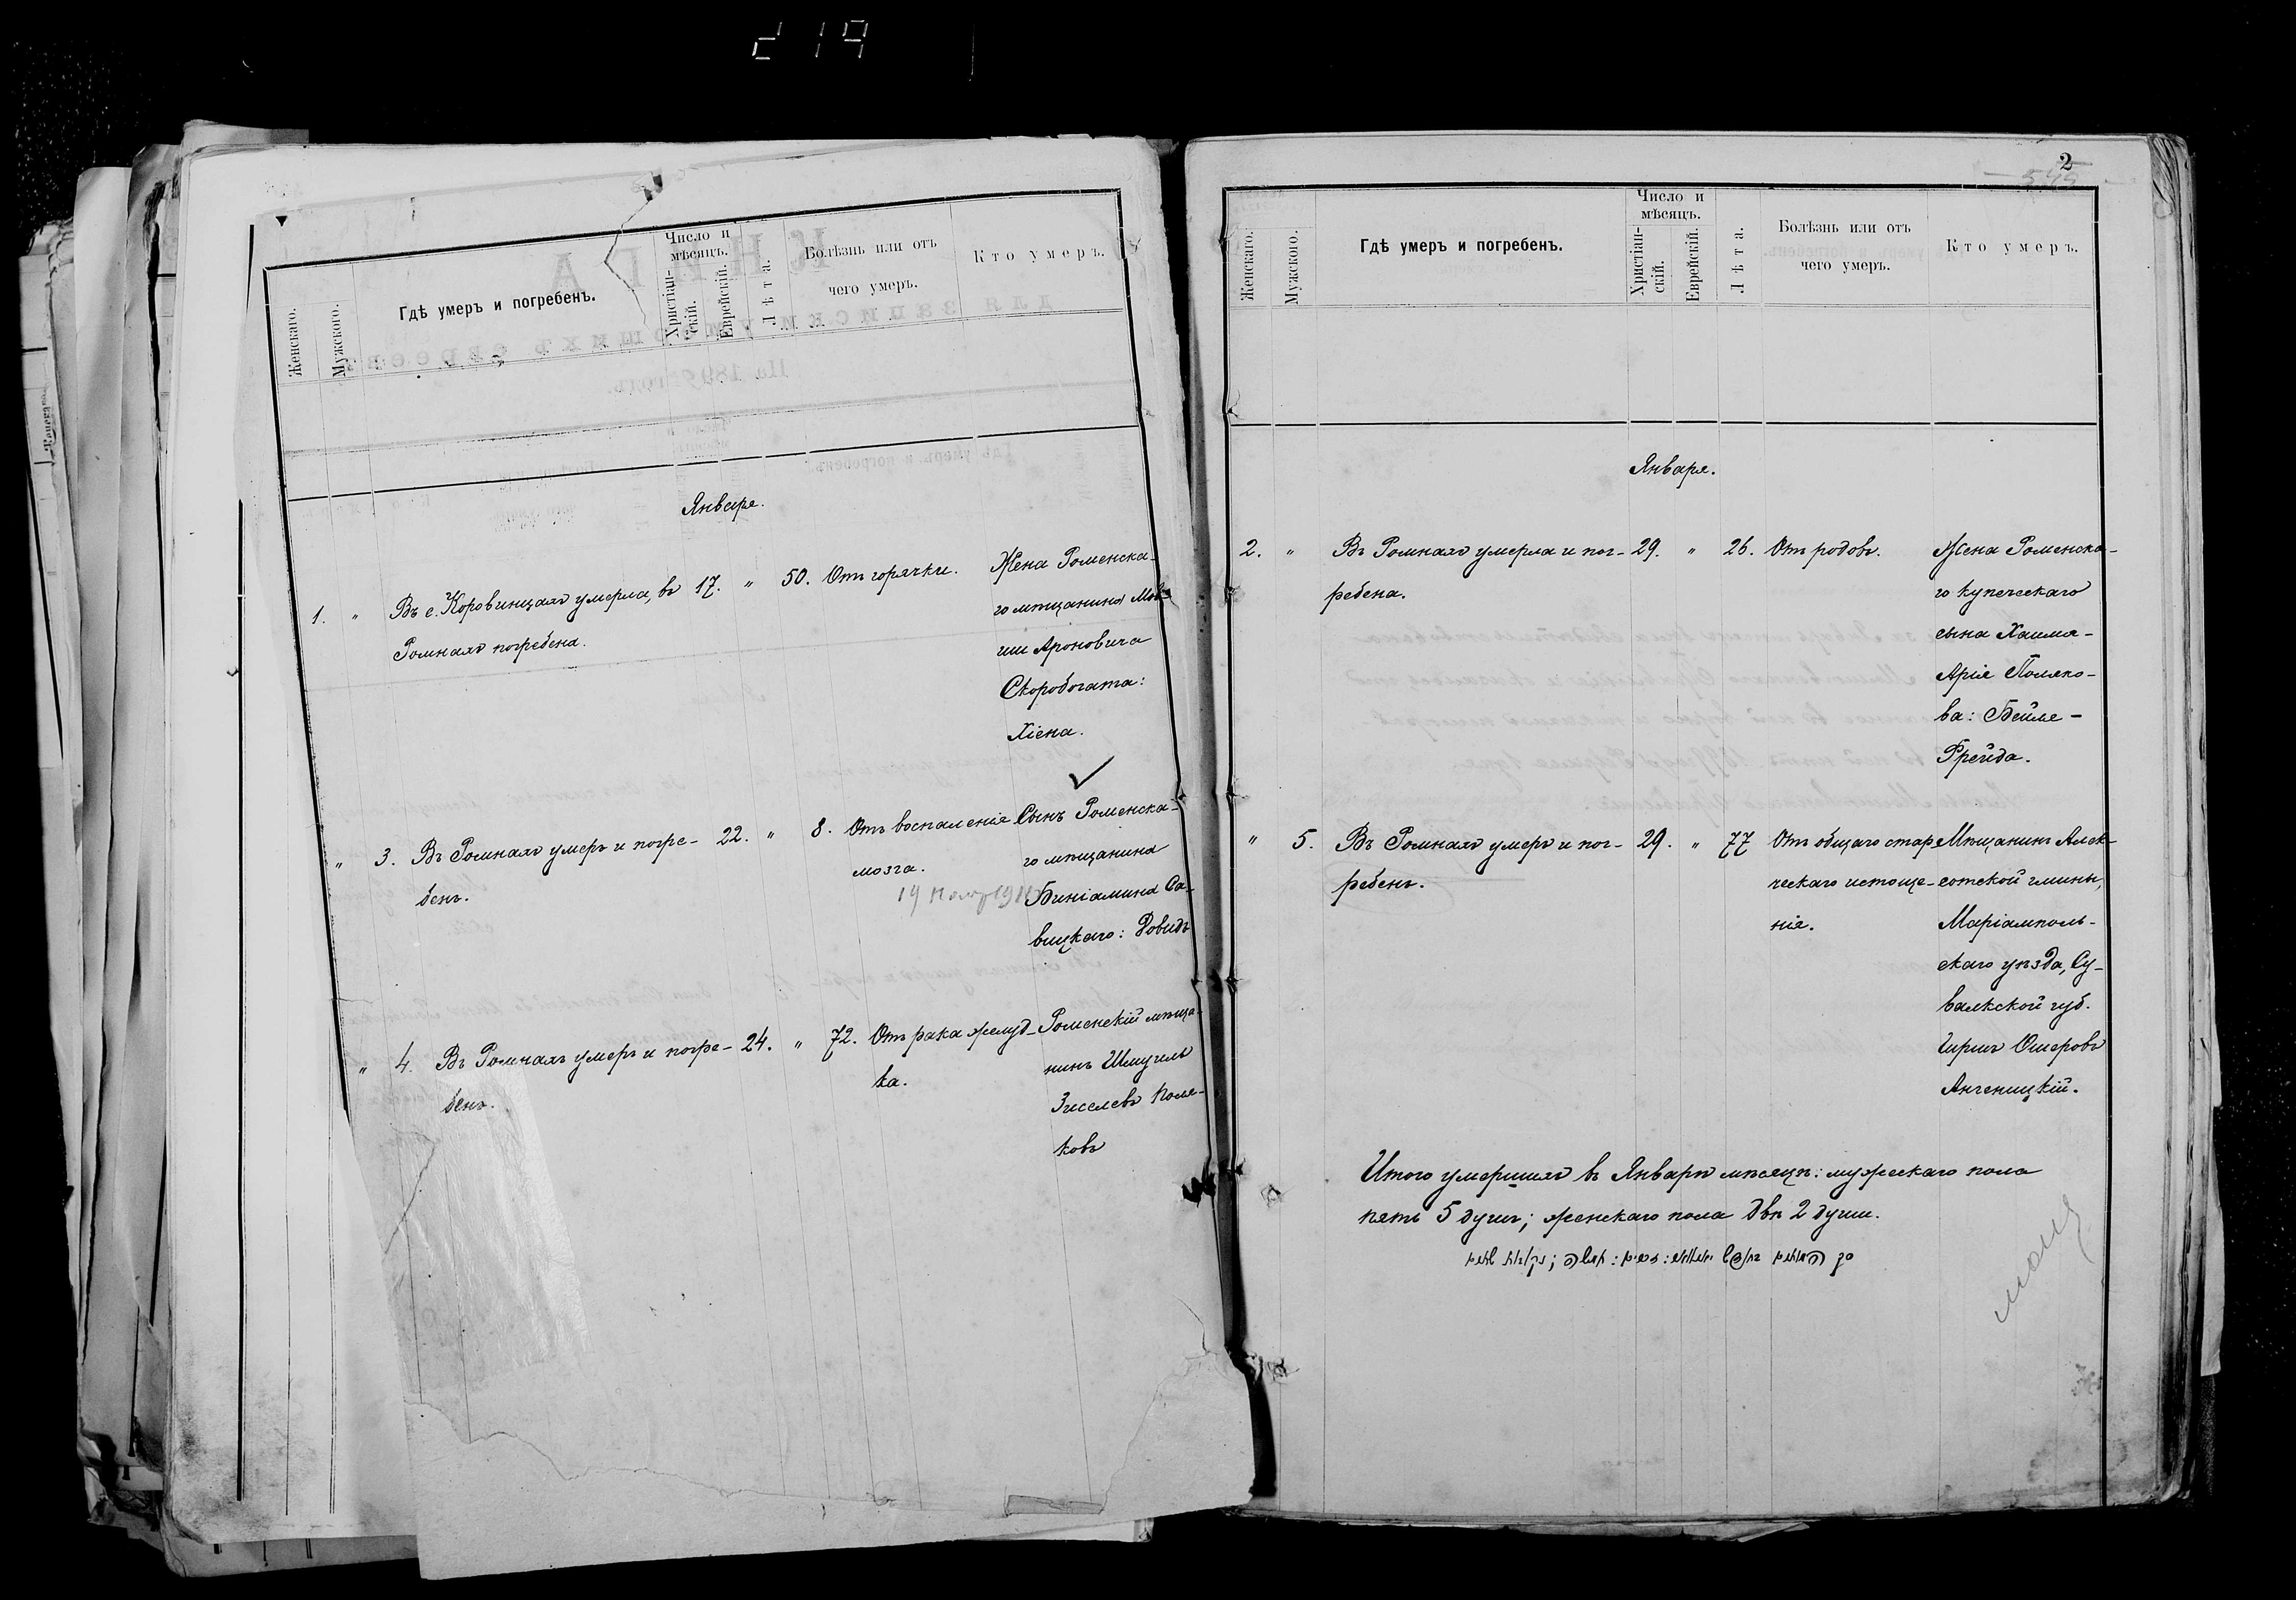 219
Женскаго.
Мужского.
Гдѣ умеръ и погребенъ.
Число и мѣсяцъ.
Христіан-
скій.
Еврейскій.
Лѣта.
Болѣзнь или отъ
чего умеръ.
Кто умеръ.
Январь.
1. " Въ с. Коровинцахъ умерла, въ 17. " 50. Отъ горячки. Жена Роменска-
Ромнахъ погребена. го мѣщанина Мов-
ши Ароновича
Скоробогата:
Хіена.
" 3. Въ Ромнахъ умеръ и погре- 22. " 8. Отъ воспаленія Сынъ Роменска-
бенъ. мозга. го мѣщанина
Биніамина Са-
вицкаго: Довидъ
" 4. Въ Ромнахъ умеръ и погре- 24. " 72. Отъ рака желуд- Роменскій мѣща-
бенъ. ка. нинъ Шмуель
Зиселевъ Поля-
ковъ
2
Женскаго.
Мужскаго.
Гдѣ умеръ и погребенъ.
Число и
мѣсяцъ.
Христіан-
скій.
Еврейскій.
Лѣта.
Болѣзнь или отъ
чего умеръ.
Кто умеръ.
Январь.
2. " Въ Ромнахъ умерла и пог- 29. " 26. Отъ родовъ. Жена Роменска-
ребена. го купеческаго
сына Хаима-
Арія Поляко-
ва: Бейля-
Фрейда.
" 5. Въ Ромнахъ умеръ и пог- 29. " 77 Отъ общаго стар- Мѣщанинъ Алек-
ребенъ. ческаго истоще- сотской гмины,
нія. Маріамполь-
скаго уѣзда, Су-
валкской губ.
Гиршъ Ошеровъ
Анченицкій.
Итого умершихъ въ Январѣ мѣсяцѣ: мужескаго пола
пять 5 душъ; женскаго пола двѣ 2 души.